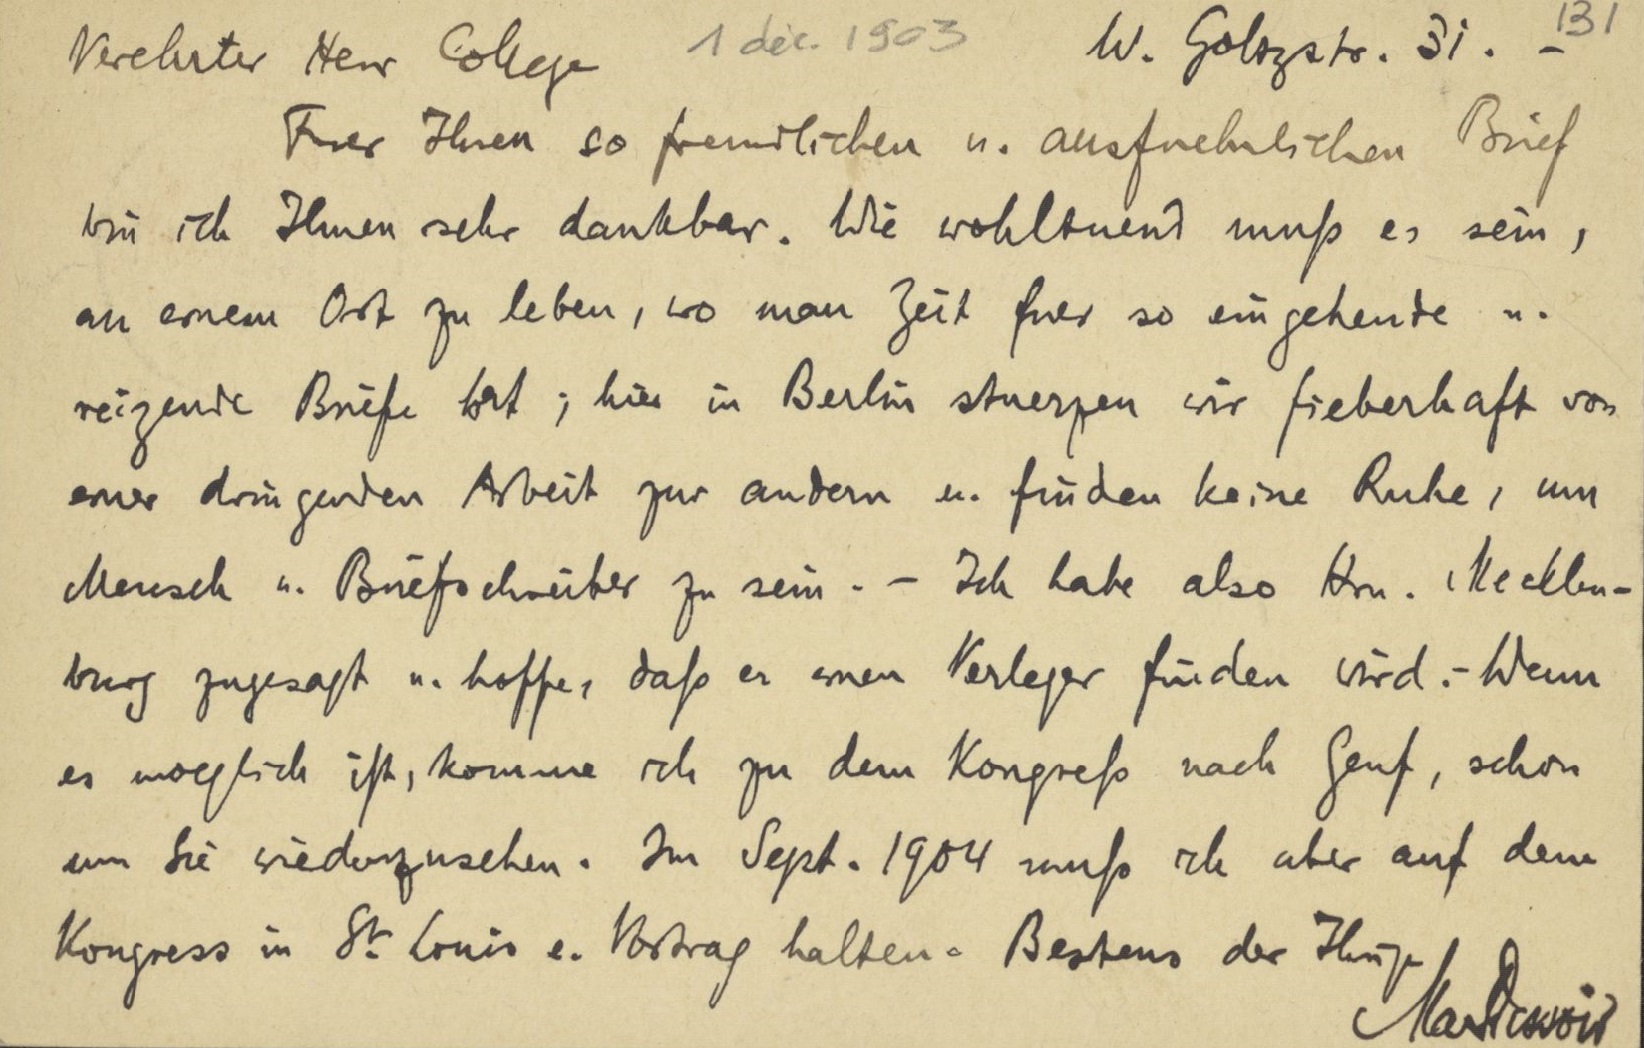 131
Verehrter Herr College 1 déc. 1903 W. Goltzstr. 31. –
Fuer Ihren so freundlichen u. ausfuehrlichen Brief
bin ich Ihnen sehr dankbar. Wie wohltuend muß es sein,
an einem Ort zu leben, wo man Zeit fuer so eingehende u.
reizende Briefe hat; hier in Berlin stuerzen wir fieberhaft von
einer dringenden Arbeit zur andern u. finden keine Ruhe, um
Mensch u. Briefschreiber zu sein. – Ich habe also Hrn. Mecklen-
burg zugesagt u. hoffe, daß er einen Verleger finden wird. – Wenn
es moeglich ist, komme ich zu dem Kongreß nach Genf, schon
um Sie wiederzusehen. Im Sept. 1904 muß ich aber auf dem
Kongress in St. Louis e. Vortrag halten. Bestens der Ihrige
Max Dessoir